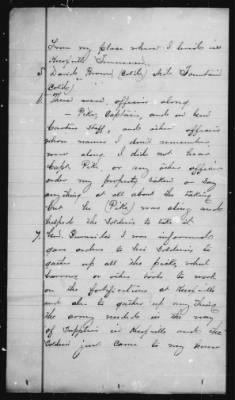 From my place where I lived in
Knoxville Tennessee.
5 David Brown (Cold) And Fountain
(Cold)
6. There were officers along
— Pike, Captain, and in Genl
staff, and other officers
whose names I don't remember
were along I did not hear
Capt. Pike, or any other officer
order my property taken or say
anything at all about the taking
But he (Pike) was along and
helped the Soldiers to take it
7. Genl. Burnsides I was informed
gave orders to his Soldiers to
gather up all the picks, shovel
or other tools to work
on the fortifications at Knoxville
and also to gather up any thing
the army needed in the way
of Supplies in Knoxville and the
Soldiers just came to my house